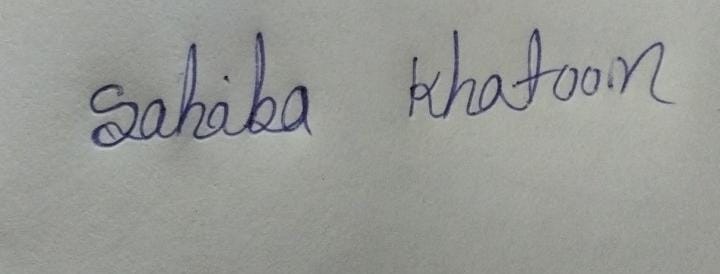 Sahiba Khatoon